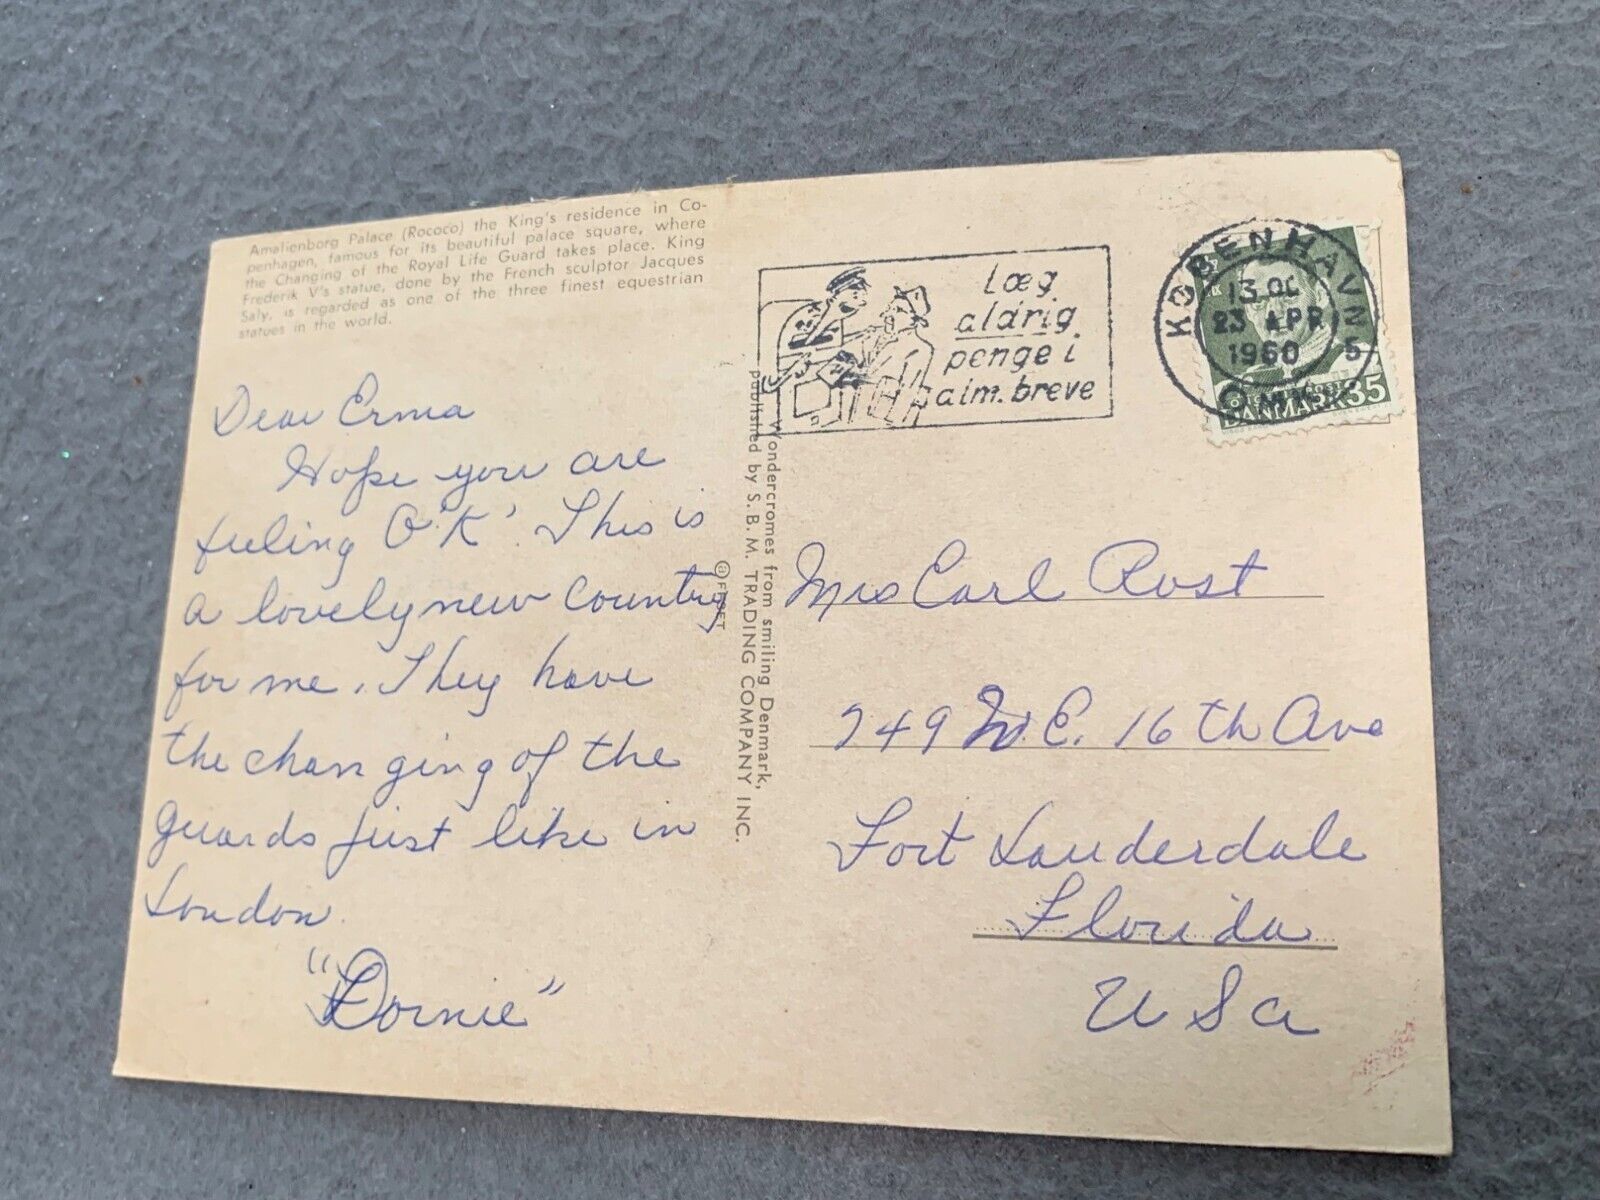 Amalienborg Palace (Rococo) the King's residence in Co-
penhagen, famous for its beautiful palace square, where
the Changing of the Royal Life Guard takes place. King
Frederik V's statue, done by the French sculptor Jacques
Saly, is regarded as one of the three finest equestrian
statues in the world.
Dear Erma
Hope you are
feeling O'K'. This is
a lovely new country
for me. They have
the changing of the
guards just like in
London.
"Dornie"
Wondercromes from smiling Denmark,
published by S. B. M. TRADING COMPANY INC.
Læg
aldrig
penge i
alm. breve
KØBENHAVN
23 APR
1960
DANMARK 35
Mrs Carl Rost
749 N.E. 16th Ave
Fort Lauderdale
Florida
U S a